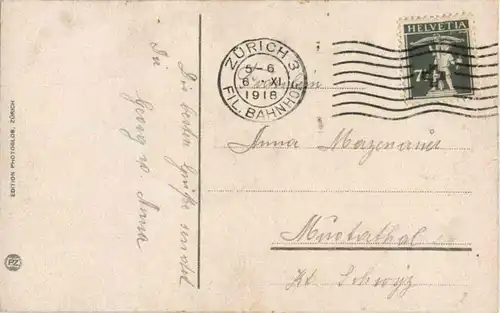 Die besten Grüsse sendet
Dir
Georg u. Anna
EDITION PHOTOGLOB, ZÜRICH
PZ
ZÜRICH 3
5-6
6. XI.
1918
FIL. BAHNHOF
HELVETIA
7½
Anna
Muotathal
Kt. Schwyz